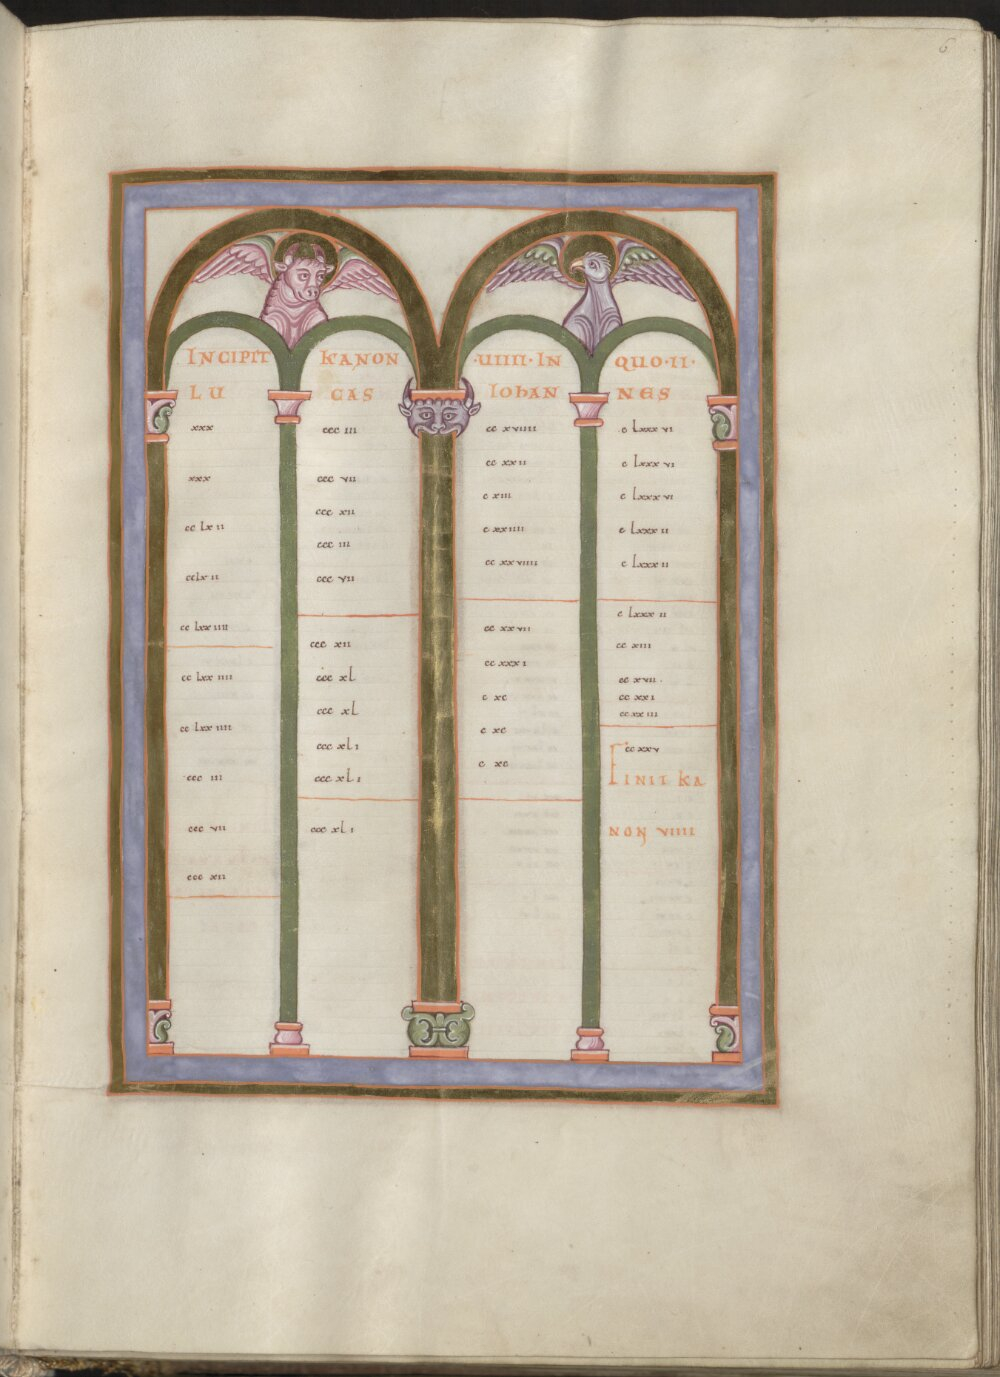 6
INCIPIT KANON ·UIIII· IN QUO·II·
LU CAS IOHAN NES
xxx
xxx
cc lx ii
cclx ii
cc lxx iiii
cc lxx iiii
cc lxx iiii
ccc iii
ccc vii
ccc xii
ccc iii
ccc vii
ccc xii
ccc iii
ccc vii
ccc xii
ccc xl
ccc xl
ccc xl i
ccc xl i
ccc xl i
cc xviiii
cc xxii
c xiii
c xxiiii
cc xxviiii
cc xxvii
cc xxxi
c xc
c xc
c xc
c lxxx vi
c lxxx vi
c lxxx vi
c lxxx ii
c lxxx ii
c lxxx ii
cc xiii
cc xvii.
cc xxi
cc xxiii
cc xxv
FINIT KA
NON VIIII